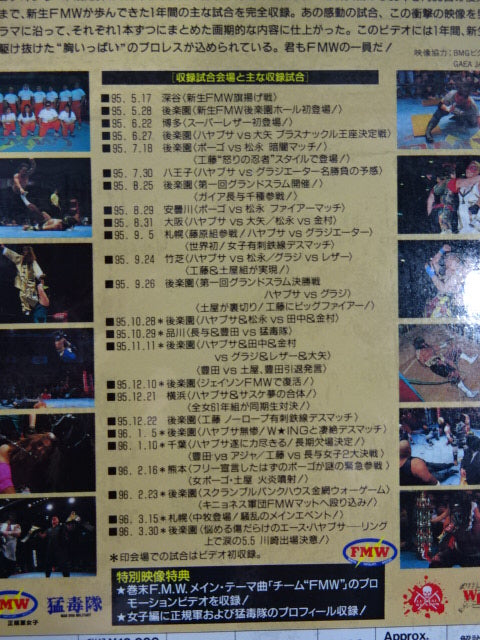 まで、新生FMWが歩んできた1年間の主な試合を完全収録。あの感動の試合、この衝撃の映像を
ラマに沿って、それぞれ1本ずつにまとめた画期的な内容に仕上がった。このビデオには1年間、新生
駆け抜けた“胸いっぱい”のプロレスが込められている。君もFMWの一員だ!
映像協力:BMGビク
GAEA JA
[収録試合会場と主な収録試合]
■95. 5.17 深谷〈新生FMW旗揚げ戦〉
■95. 5.28 後楽園〈新生FMW後楽園ホール初登場!〉
■95. 6.22 博多〈スーパーレザー初登場!〉
■95. 6.27 後楽園〈ハヤブサ vs 大矢 ブラスナックル王座決定戦〉
■95. 7.18 後楽園〈ポーゴ vs 松永 暗闇マッチ!〉
〈工藤“怒りの忍者”スタイルで登場!〉
■95. 7.30 八王子〈ハヤブサ vs グラジエーター名勝負の予感〉
■95. 8.25 後楽園〈第一回グランドスラム開催!〉
〈ガイア長与千種参戦!〉
■95. 8.29 安曇川〈ポーゴ vs 松永 ファイアーマッチ〉
■95. 8.31 大阪〈ハヤブサ vs 大矢/松永 vs 金村〉
■95. 9. 5 札幌〈藤原組参戦!ハヤブサ vs グラジエーター〉
〈世界初!女子有刺鉄線デスマッチ〉
■95. 9.24 竹芝〈ハヤブサ vs 松永/グラジ vs レザー〉
〈工藤&土屋組が実現!〉
■95. 9.26 後楽園〈第一回グランドスラム決勝戦
ハヤブサ vs グラジ〉
〈土屋が裏切り!工藤にビッグファイアー!〉
■95.10.28*後楽園〈ハヤブサ&松永 vs 田中&金村〉
■95.10.29*品川〈長与&豊田 vs 猛毒隊〉
■95.11.11*後楽園〈ハヤブサ&田中&金村
vs グラジ&レザー&大矢〉
〈豊田 vs 土屋、豊田引退発言〉
■95.12.10*後楽園〈ジェイソンFMWで復活!〉
■95.12.21 横浜〈ハヤブサ&サスケ夢の合体!〉
〈全女61年組が同期生対決!〉
■95.12.22 後楽園〈工藤 ノーロープ有刺鉄線デスマッチ〉
■96. 1. 5*後楽園〈ハヤブサ無惨!W★INGと凄絶デスマッチ〉
■96. 1.10*千葉〈ハヤブサ遂に力尽きる!長期欠場決定!〉
〈豊田 vs アジャ/工藤 vs 長与女子2大決戦〉
■96. 2.16*熊本〈フリー宣言したはずのポーゴが謎の緊急参戦〉
〈女ポーゴ・土屋 火炎噴射!〉
■96. 2.23*後楽園〈スクランブルバンクハウス金網ウォーゲーム〉
〈キニョネス軍団FMWマットへ殴り込み!〉
■96. 3.15*札幌〈中牧登場!騒乱のメインイベント!〉
■96. 3.30*後楽園〈悩める傷だらけのエース・ハヤブサ…リング
上で涙の5.5 川崎出場決意〉
*印会場での試合はビデオ初収録。
FMW
特別映像特典
★巻末F.M.W.メイン・テーマ曲「チーム“FMW”」のプロ
モーションビデオを収録!
★女子編に正規軍および猛毒隊のプロフィール収録!
FMW
正規軍女子
猛毒隊
MAD DOG MILITARY
Approx.